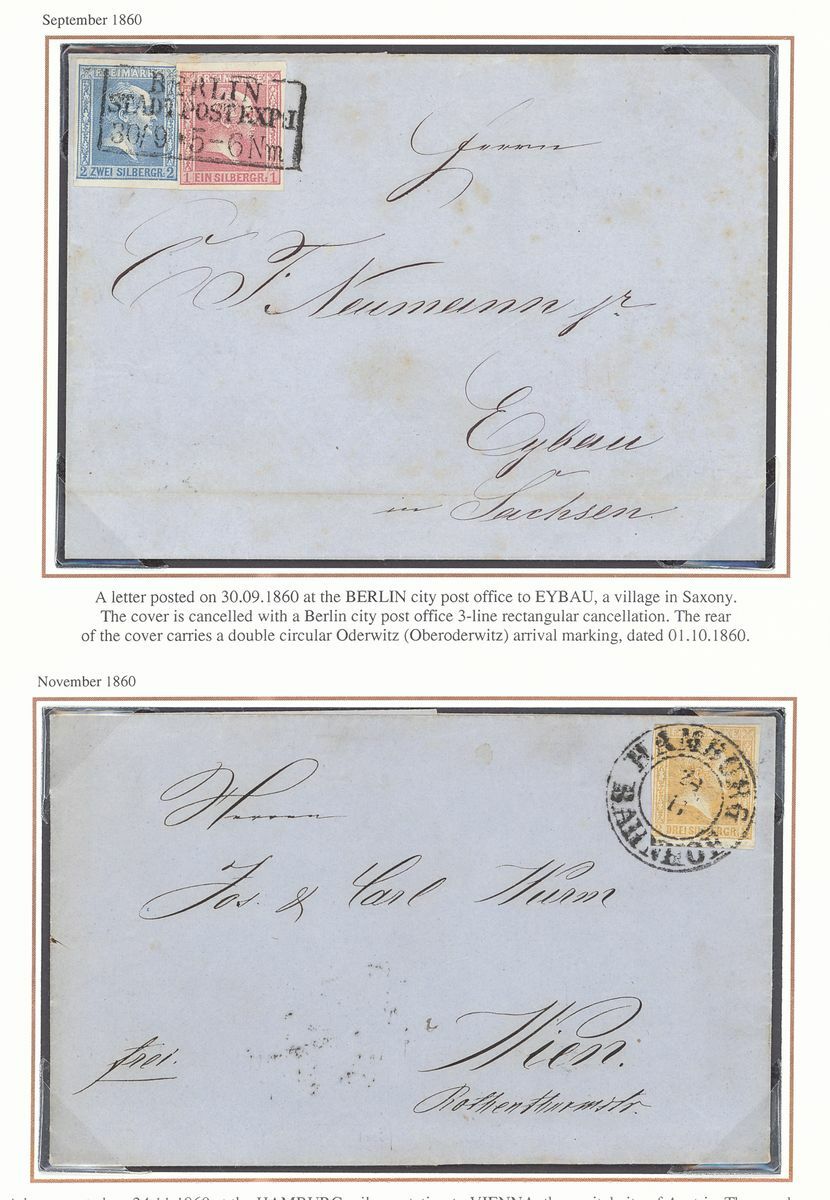 September 1860
FREIMARKE
BERLIN
STADTPOSTEXP:I
30/9 * 5-6 Nm
2 ZWEI SILBERGR: 2
1 EIN SILBERGR: 1
Herrn
C F. Neumann jr.
Eybau
in Sachsen.
A letter posted on 30.09.1860 at the BERLIN city post office to EYBAU, a village in Saxony.
The cover is cancelled with a Berlin city post office 3-line rectangular cancellation. The rear
of the cover carries a double circular Oderwitz (Oberoderwitz) arrival marking, dated 01.10.1860.
November 1860
HAMBURG
11
DREI SILBERGR:
BAHNHOF
Herren
Jos. & Carl Wurm
Wien.
frei.
Rothenthurmstr.